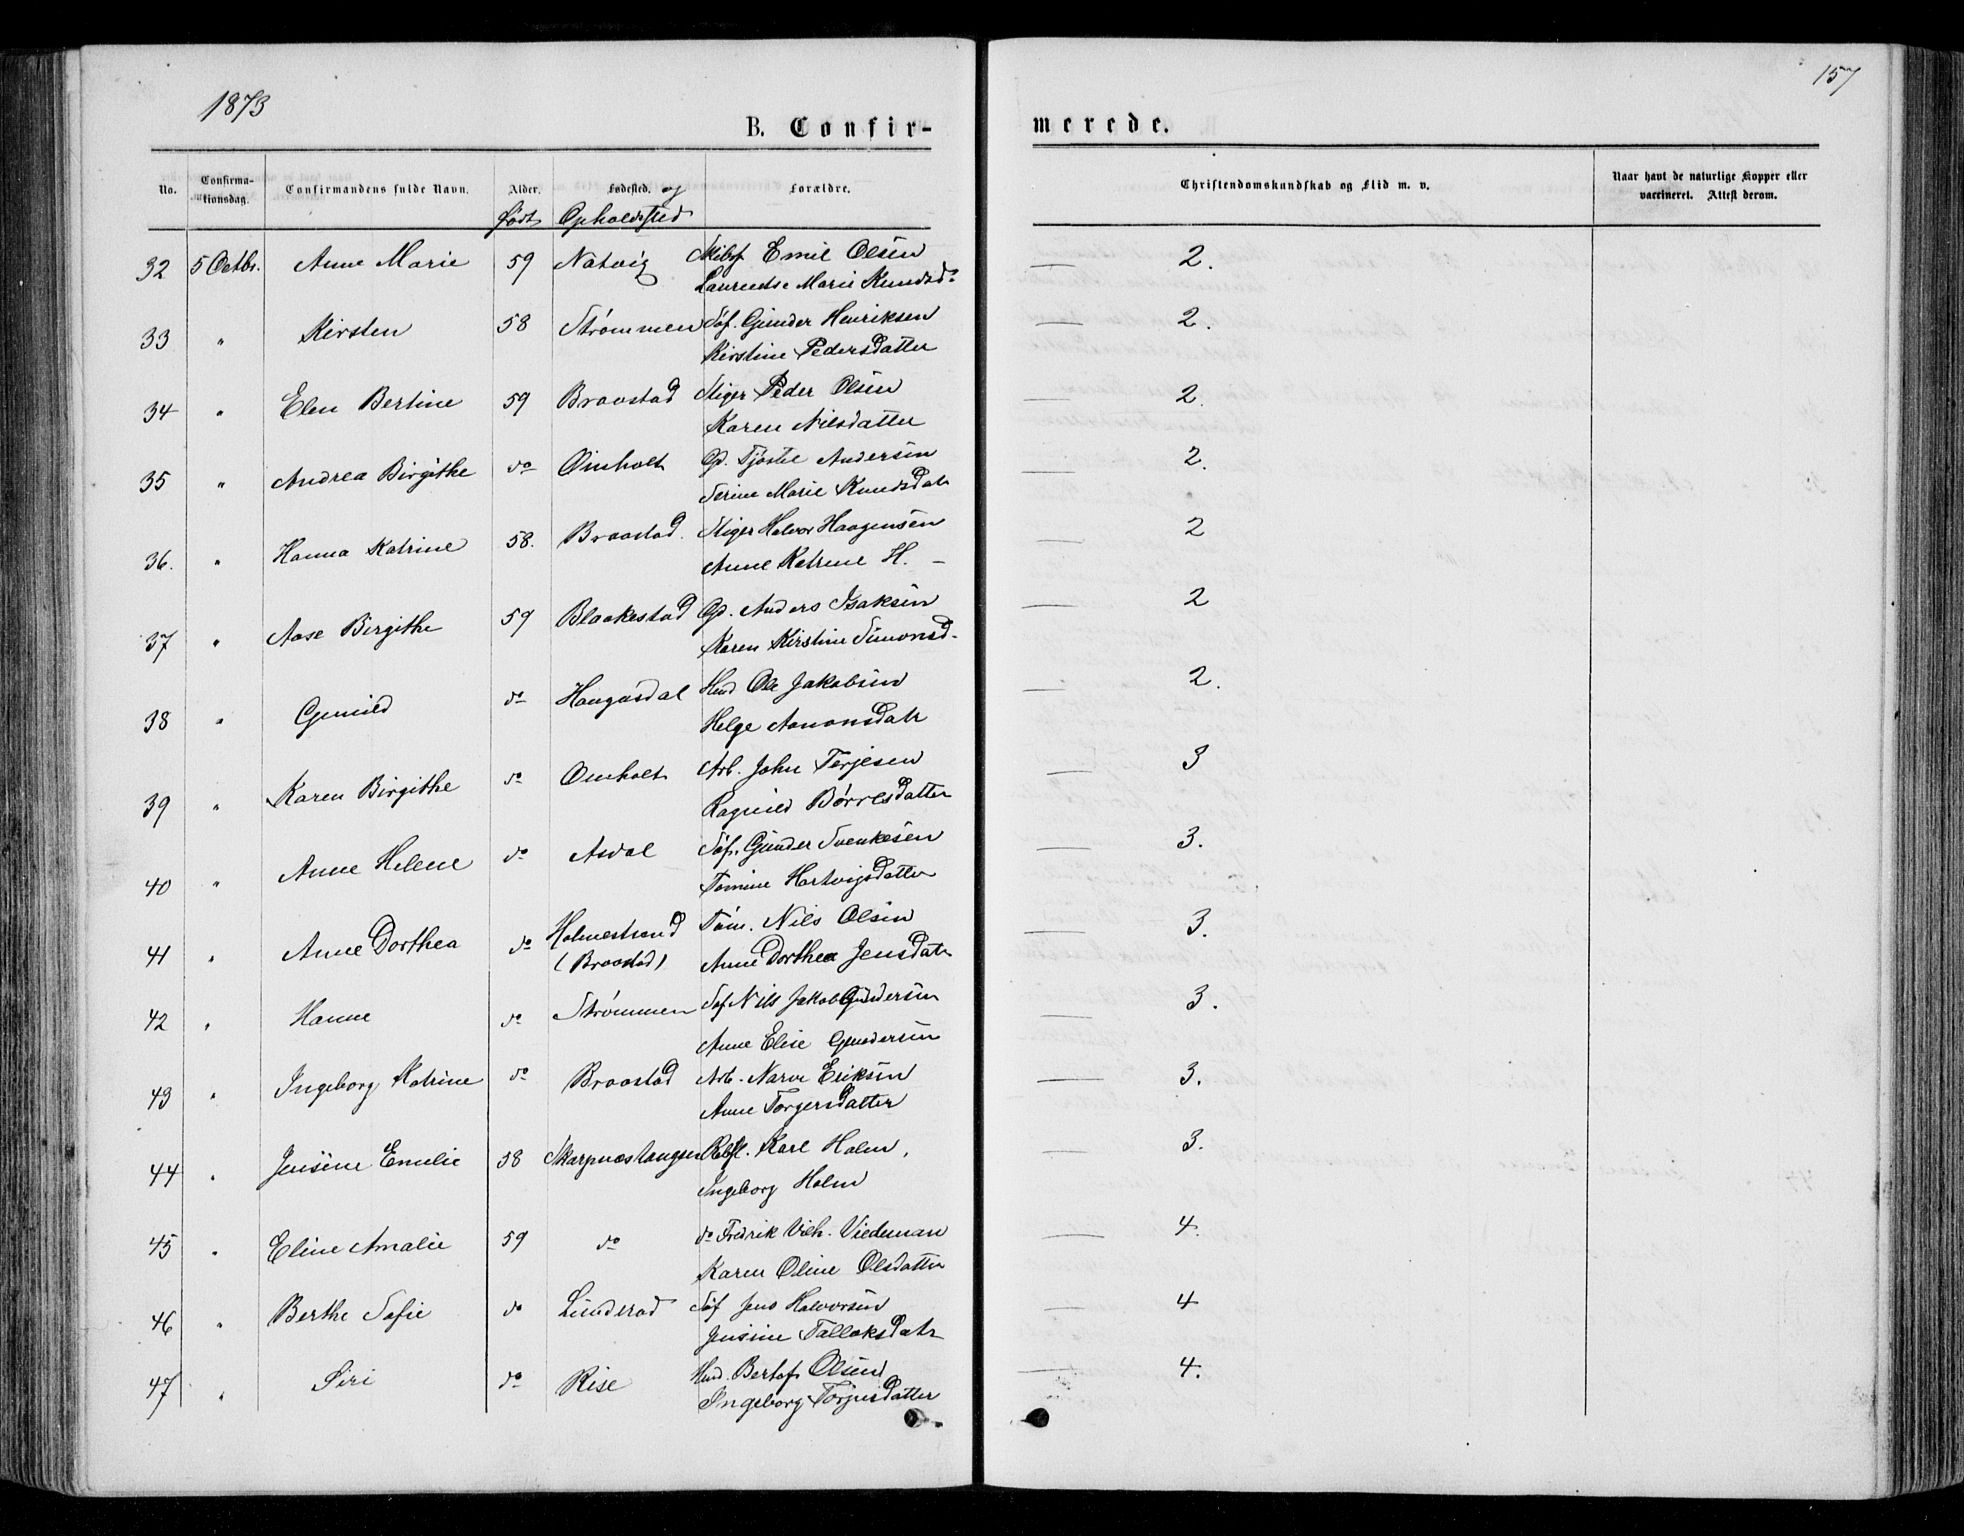 1873
157
B. Confir-
merede.
No.
Confirma-
tionsdag.
Confirmandens fulde Navn.
Alder.
Fødested.
og
Forældre.
Christendomskundskab og Flid m. v.
Naar havt de naturlige Kopper eller
vaccineret. Attest derom.
født
Opholdssted
32 5 Octbr. Anne Marie 59 Natvig Emil Olsen 2.
Marie Knudsd.
33 " Kirsten 58 Strømmen Søf. Gunder Henriksen 2.
Kirstine Pedersdatter
34 " Elen Bertine 59 Braastad Stiger Peder Olsen 2.
Karen Nilsdatter
35 " Andrea Birgithe do Omholt Gp. Tjøstel Andersen 2.
Serine Marie Knudsdatr
36. " Hanna Katrine 58. Braastad. Stiger Halvor Haagensen 2
Anne Katrine H. —
37 " Aase Birgithe 59 Blaakestad Gp. Anders Isaksen 2
Karen Kirstine Simonsd.
38 " Gunild do Haugaasdal Hmd Ole Jakobsen 2.
Helge Aanonsdatr
39 " Karen Birgithe do Omholt Arb. John Terjesen 3
Ragnild Børresdatter
40 " Anne Helene do Asdal Søf. Gunder Svenkesen 3.
Tomine Hartvigsdatter
41 " Anne Dorthea do Holmestrand Tøm. Nils Olsen 3.
(Braastad) Anne Dorthea Jensdatr
42 " Hanne do Strømmen Søf Nils Jakob Gundersen 3.
Anne Elise Gundersen
43 " Ingeborg Katrine do Braastad Arb. Narve Eriksen 3.
Anne Torgersdatter
44 " Jensine Emilie 58 Skarpnæstangen Karl Holm, 3.
Ingeborg Holm
45 " Eline Amalie 59 do do Fredrik Vilh. Viedeman 4.
Karen Oline Olsdatter
46 " Berthe Sofie do Lunderød Søf Jens Halvorsen 4
Jensine Tallaksdatr
47 " Siri do Rise Hmd. Olsen 4.
Ingeborg Torjusdatter